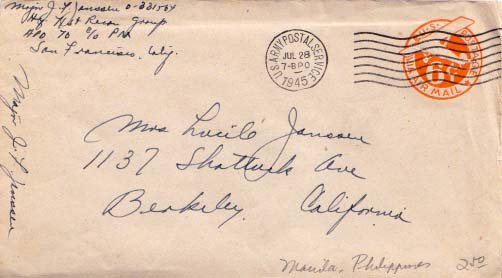 Major J. L. Janssen 0-331504
Hq 1st Recon Group
APO 70 c/o PM
San Francisco, Calif.
Major J L Janssen
U.S. ARMY POSTAL SERVICE
JUL 28
7-8PO
1945
U.S. POSTAGE
6¢
VIA AIR MAIL
Mrs Lucile Janssen
1137 Shattuck Ave
Berkeley, California
Manila, Philippines 2.50